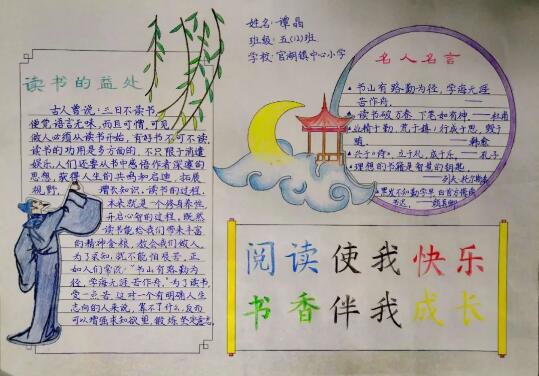 姓名:谭晶
班级:五(12)班
学校:官湖镇中心小学
读书的益处
古人曾说:三日不读书,
便觉语言无味,而且可憎,可见,
做人必须从读书开始,有好书不可不读,
读书的功用是多方面的,不只限于消遣
娱乐,人们还要从书中感悟作者深邃的
思想,获得人生的共鸣和启迪,拓展
视野,增长知识,读书的过程,
本来就是一个修身养性,
开启心智的过程,既然
读书能给我们带来丰富
的精神食粮,教会我们做人,
为了求知,就不能怕艰苦,正
如人们常说:"书山有路勤为
径,学海无涯苦作舟,"为了读书,
受一点苦,这对一个有明确人生
志向的人来说,算不了什么,反而
可以增强求知欲望,锻炼坚定意志
名人名言
书山有路勤为径,学海无涯
苦作舟,
读书破万卷,下笔如有神,——杜甫
业精于勤,荒于嬉;行成于思,毁于
随,——韩愈
兴于《诗》,立于礼,成于乐,——孔子
理想的书籍是智慧的钥匙
——列夫·托尔斯泰
黑发不知勤学早,白首方悔读
书迟,——颜真卿
阅读使我快乐
书香伴我成长